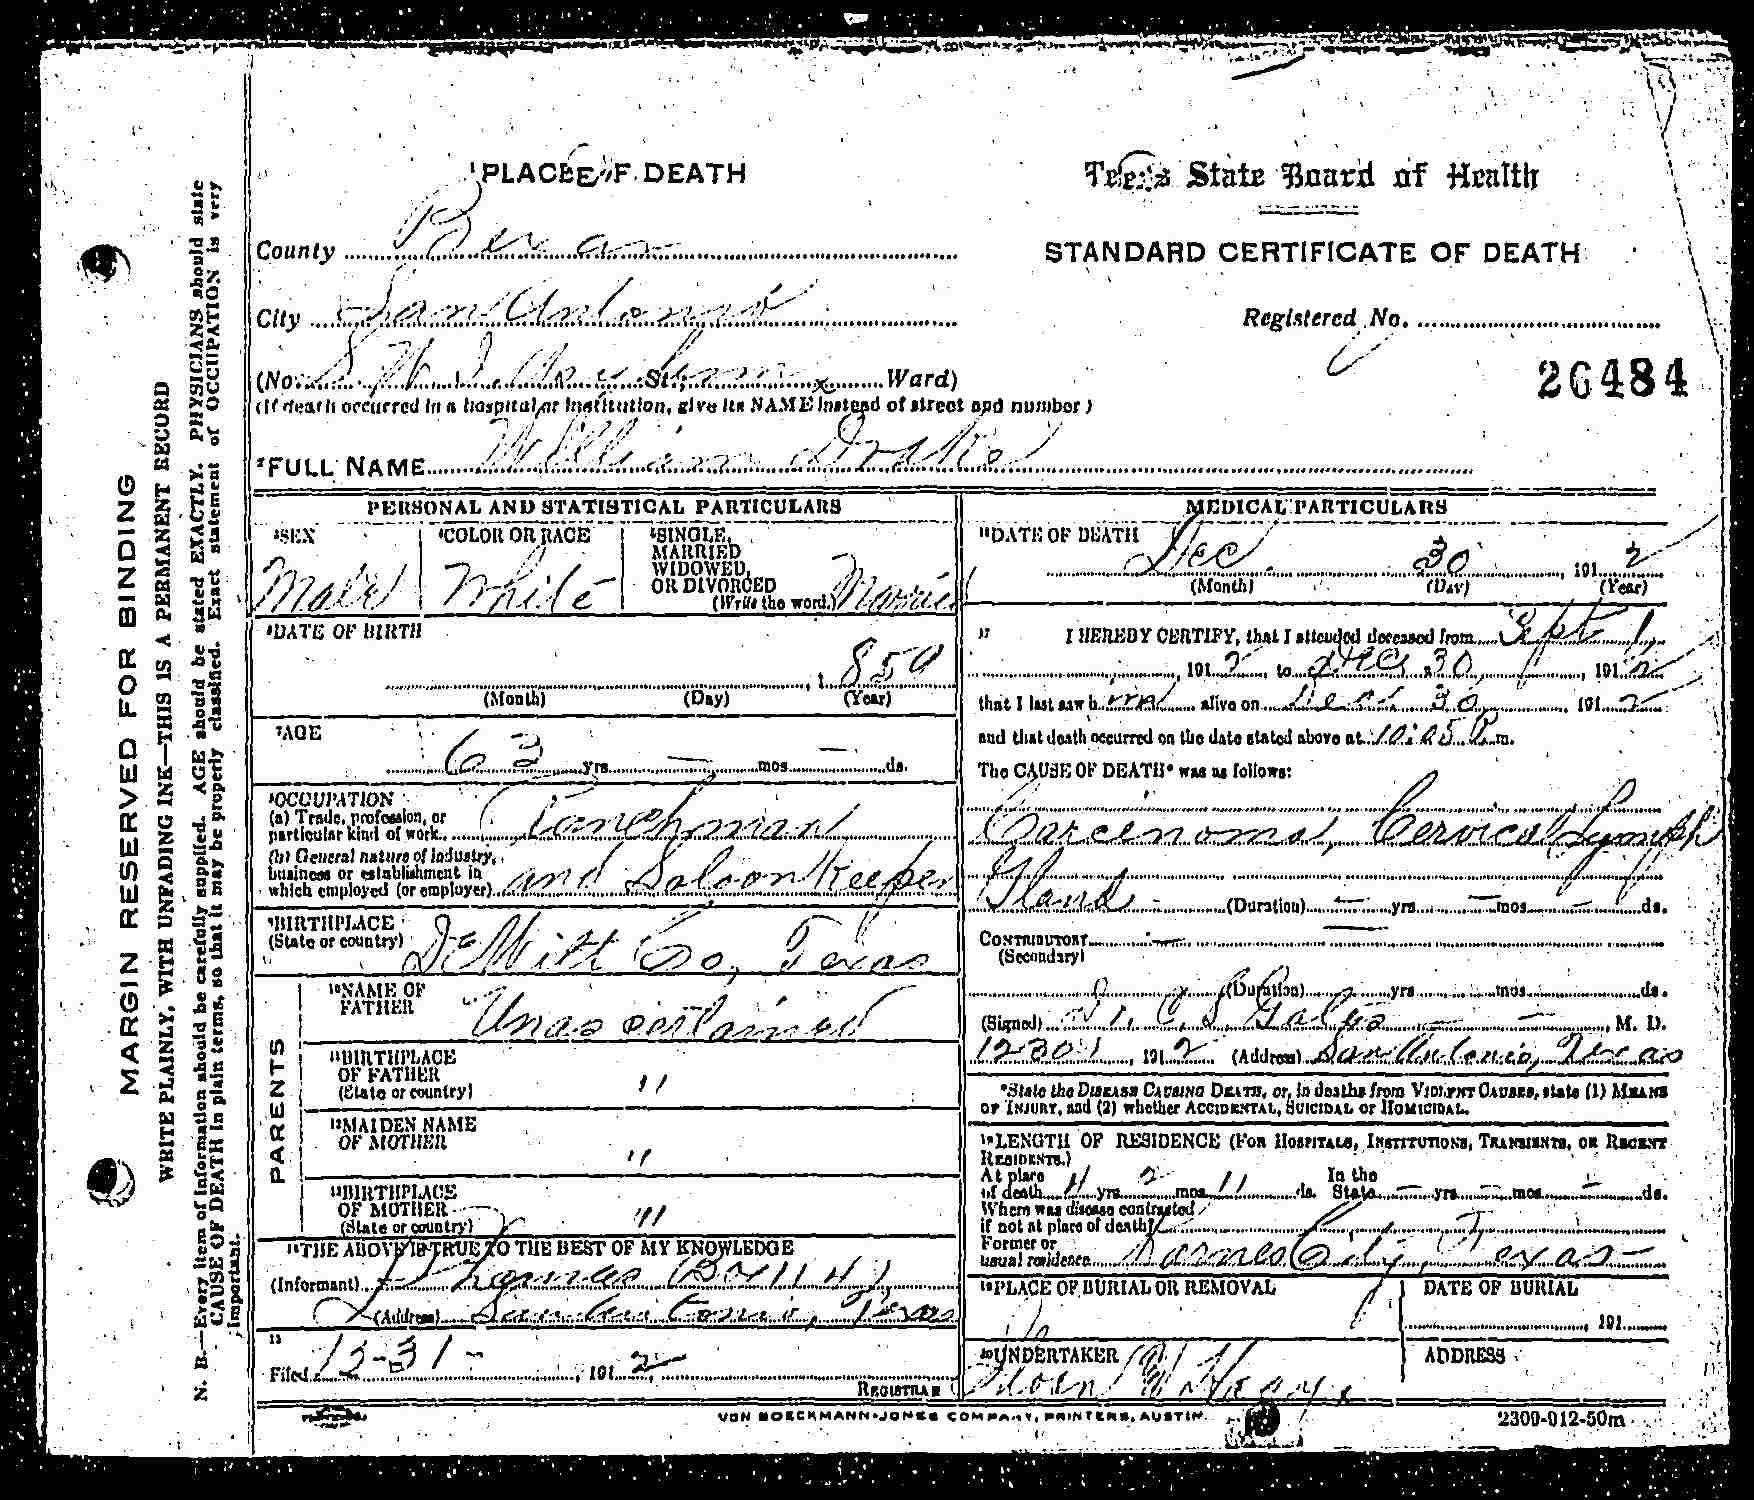 PLACE OF DEATH
Texas State Board of Health
STANDARD CERTIFICATE OF DEATH
County Bexar
City San Antonio
Registered No.
(No. S. W. I. Asylum St.; Ward)
26484
(If death occurred in a hospital or institution, give its NAME instead of street and number)
2FULL NAME William Drake
PERSONAL AND STATISTICAL PARTICULARS
3SEX
Male
4COLOR OR RACE
White
5SINGLE, MARRIED WIDOWED, OR DIVORCED (Write the word.)
Married
6DATE OF BIRTH
, 1850
(Month) (Day) (Year)
7AGE
63 yrs. — mos. — ds.
8OCCUPATION
(a) Trade, profession, or
particular kind of work. Ranchman
(b) General nature of industry,
business or establishment in
which employed (or employer) and Saloon Keeper
9BIRTHPLACE
(State or country) DeWitt Co, Texas
PARENTS
10NAME OF FATHER Unascertained
11BIRTHPLACE OF FATHER (State or country) "
12MAIDEN NAME OF MOTHER "
13BIRTHPLACE OF MOTHER (State or country) "
14THE ABOVE IS TRUE TO THE BEST OF MY KNOWLEDGE
(Informant) Thomas
(Address) San Antonio, Texas
15
Filed 12-31-, 1912
REGISTRAR
MEDICAL PARTICULARS
16DATE OF DEATH
Dec. 30, 1912
(Month) (Day) (Year)
17 I HEREBY CERTIFY, that I attended deceased from Sept 1,
, 1912, to Dec 30, 1912
that I last saw him alive on Dec. 30, 1912
and that death occurred on the date stated above at 10:05 P.m.
The CAUSE OF DEATH* was as follows:
Carcinoma, Cervical Lymph
Gland — (Duration) — yrs. — mos. — ds.
CONTRIBUTORY —
(Secondary)
(Duration) yrs. mos. ds.
(Signed) Dr. C. S. — —, M. D.
12-30, 1912 (Address) San Antonio, Texas
*State the DISEASE CAUSING DEATH, or, in deaths from VIOLENT CAUSES, state (1) MEANS
OF INJURY, and (2) whether ACCIDENTAL, SUICIDAL or HOMICIDAL.
18LENGTH OF RESIDENCE (FOR HOSPITALS, INSTITUTIONS, TRANSIENTS, OR RECENT
RESIDENTS.)
At place In the
of death 4 yrs. 2 mos. 11 ds. State — yrs. — mos. — ds.
Where was disease contracted
if not at place of death?
Former or
usual residence Karnes City, Texas
19PLACE OF BURIAL OR REMOVAL
DATE OF BURIAL
, 191
20UNDERTAKER
ADDRESS
VON BOECKMANN-JONES COMPANY, PRINTERS, AUSTIN.
2300-912-50m
MARGIN RESERVED FOR BINDING
WRITE PLAINLY, WITH UNFADING INK—THIS IS A PERMANENT RECORD
N. B.—Every item of information should be carefully supplied. AGE should be stated EXACTLY. PHYSICIANS should state
CAUSE OF DEATH in plain terms, so that it may be properly classified. Exact statement of OCCUPATION is very
important.